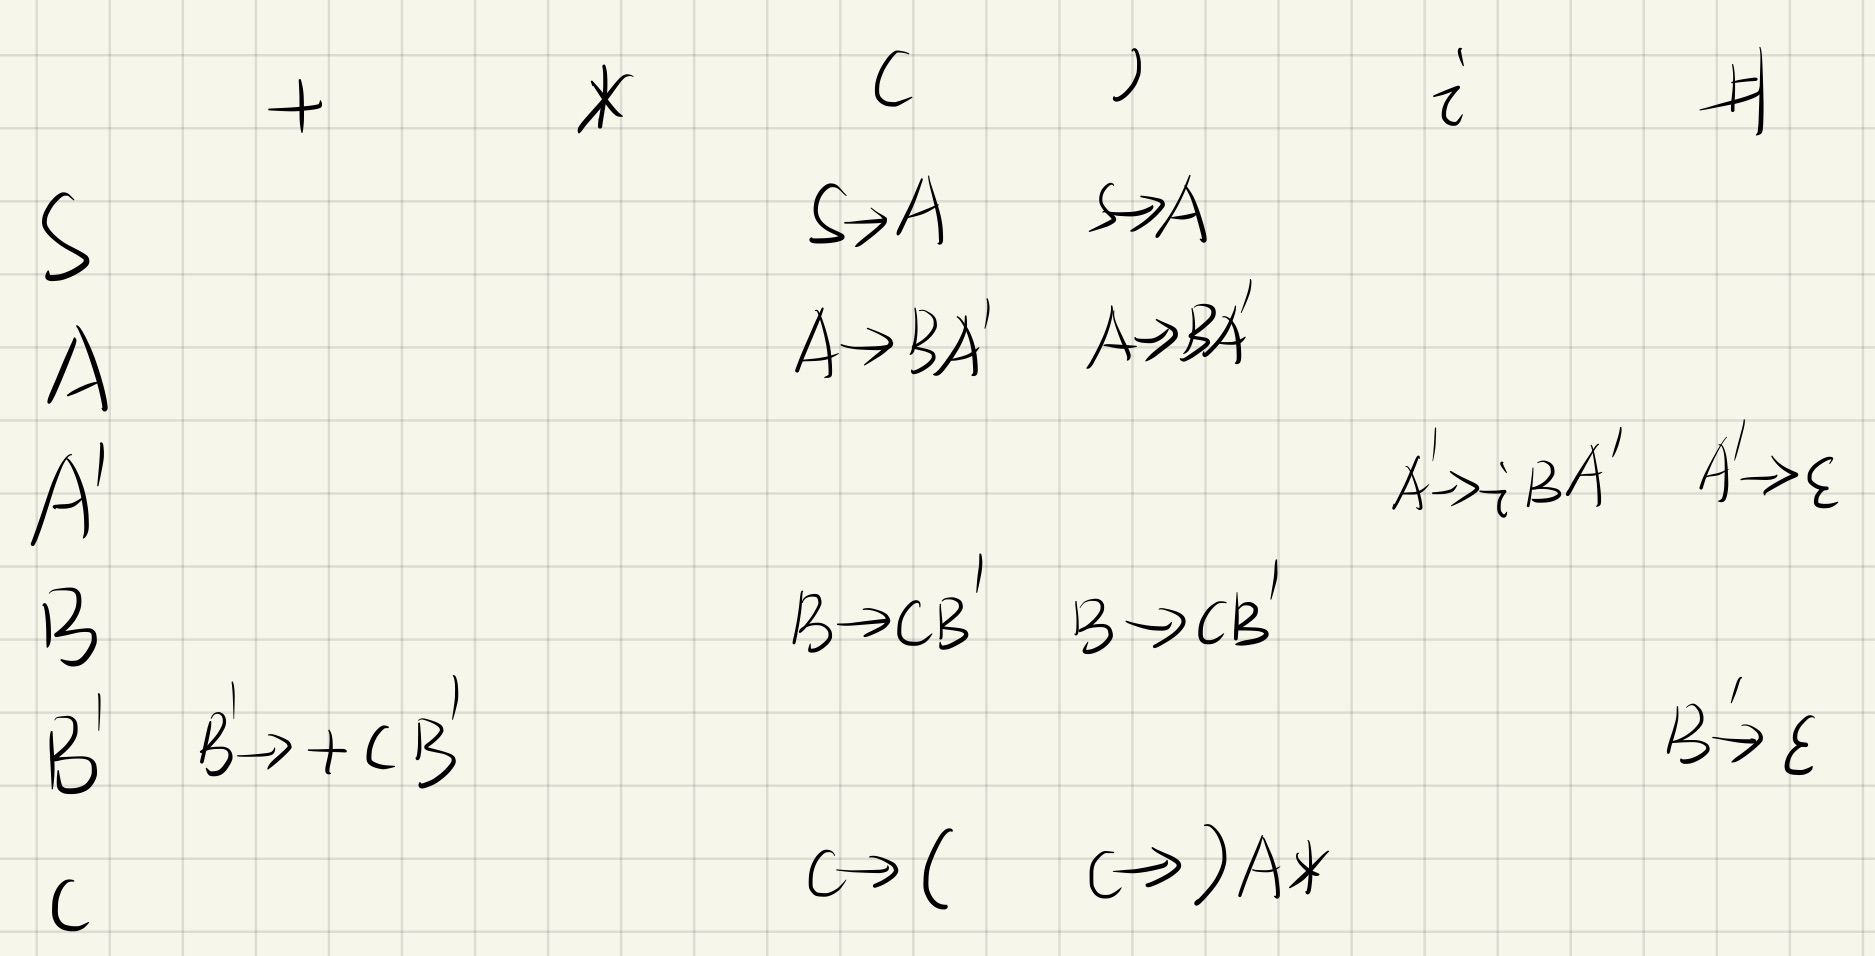 + * ( ) i #
S S→A S→A
A A→BA' A→BA'
A' A'→iBA' A'→ε
B B→CB' B→CB'
B' B'→+CB' B'→ε
C C→( C→)A*